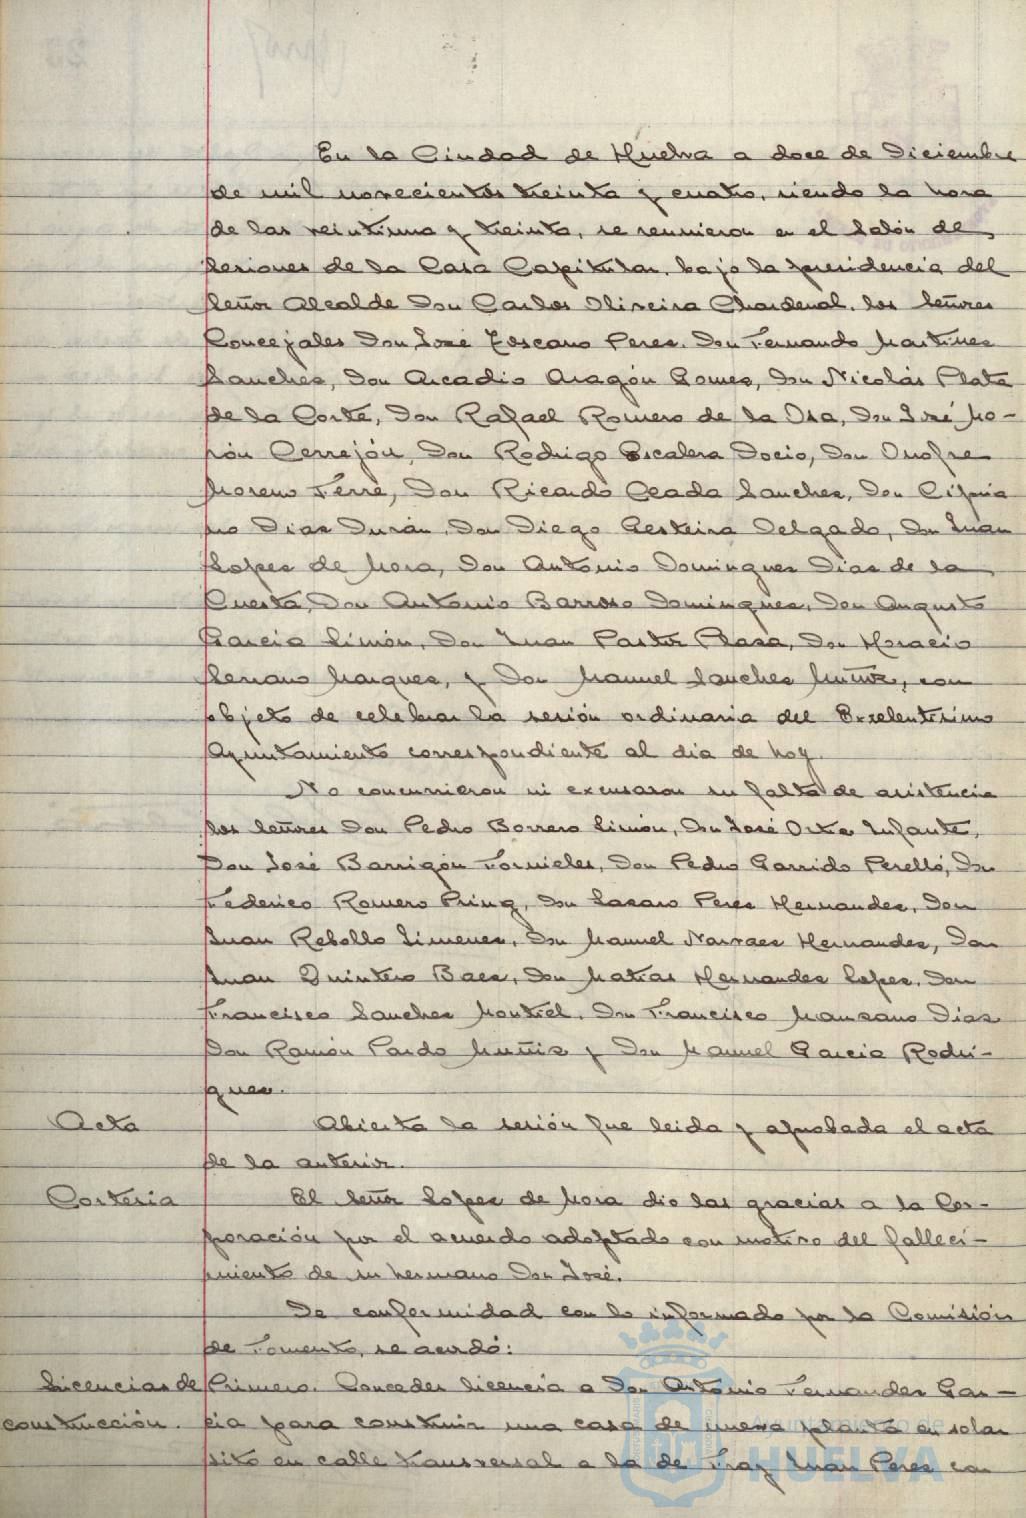 En la Ciudad de Huelva a doce de Diciembre
de mil novecientos treinta y cuatro, siendo la hora
de las veintiuna y treinta, se reunieron en el Salón de
Sesiones de la Casa Capitular, bajo la presidencia del
Señor Alcalde Don Carlos Oliveira Chardenal, los Señores
Concejales Don José Toscano Peres, Don Fernando Martines
Sanches, Don Arcadio Aragón Gomes, Don Nicolás Plata
de la Corte, Don Rafael Romero de la Osa, Don José Mo-
rón Cerrejón, Don Rodrigo Escalera Docio, Don Onofre
Moreno Ferré, Don Ricardo Ceada Sanches, Don Cipria
no Dias Durán, Don Diego Gesteira Delgado, Don Juan
Lopes de Mora, Don Antonio Domingues Dias de la
Cuesta, Don Antonio Barroso Domingues, Don Augusto
Garcia Simón, Don Juan Pastor Plasa, Don Horacio
Serrano Marques, y Don Manuel Sanches Muños, con
objeto de celebrar la sesión ordinaria del Exselentisimo
Ayuntamiento correspondiente al dia de hoy.
No concurrieron ni excusaron su falta de asistencia
los Señores Don Pedro Borrero Limón, Don José Ortis Infante,
Don José Barrigón Fornieles, Don Pedro Garrido Perelló, Don
Federico Romero Prinq, Don Lasaro Peres Hernandes, Don
Juan Rebollo Jimenes, Don Manuel Narvaes Hernandes, Don
Juan Quintero Baes, Don Matias Hernandes Lopes, Don
Francisco Sanches Montiel, Don Francisco Mansano Dias
Don Ramón Pardo Muñis y Don Manuel Garcia Rodri-
gues.
Acta Abierta la sesión fue leida y aprobada el acta
de la anterior.
Cortesia El Señor Lopes de Mora dio las gracias a la Cor-
poración por el acuerdo adoptado con motivo del falleci-
miento de su hermano Don José.
De conformidad con lo informado por la Comisión
de Fomento, se acordó:
Licencias de Primero. Conceder licencia a Don Antonio Fernandes Gar-
construcción. cia para construir una casa de nueva planta en solar
sito en calle transversal a la de Fray Juan Peres con
Ayuntamiento de
HUELVA